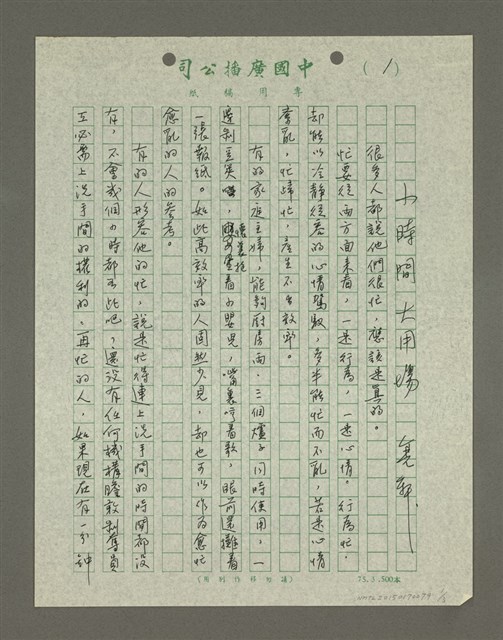 中國廣播公司
專用稿紙
（1）
小時間大用場
很多人都說他們很忙，應該是真的。
忙要從兩方面來看，一是行為，一是心情。行為忙，
却能以冷靜從容的心情駕馭，多半能忙而不亂，若是心情
紊亂，忙歸忙，產生不出效率。
有的家庭主婦，能夠廚房兩、三個爐子同時使用，一
邊剁玉米，腰裏還揹着小嬰兒，嘴裏哼着歌，眼前還攤着
一張報紙。如此高效率的人固然少見，却也可以作為愈忙
愈亂的人的參考。
有的人形容他的忙，說是忙得連上洗手間的時間都沒
有，不會每個小時都如此吧，還沒有任何機構膽敢剝奪員
工必需上洗手間的權利的，再忙的人，如果現在有一分鐘
75.3.500本